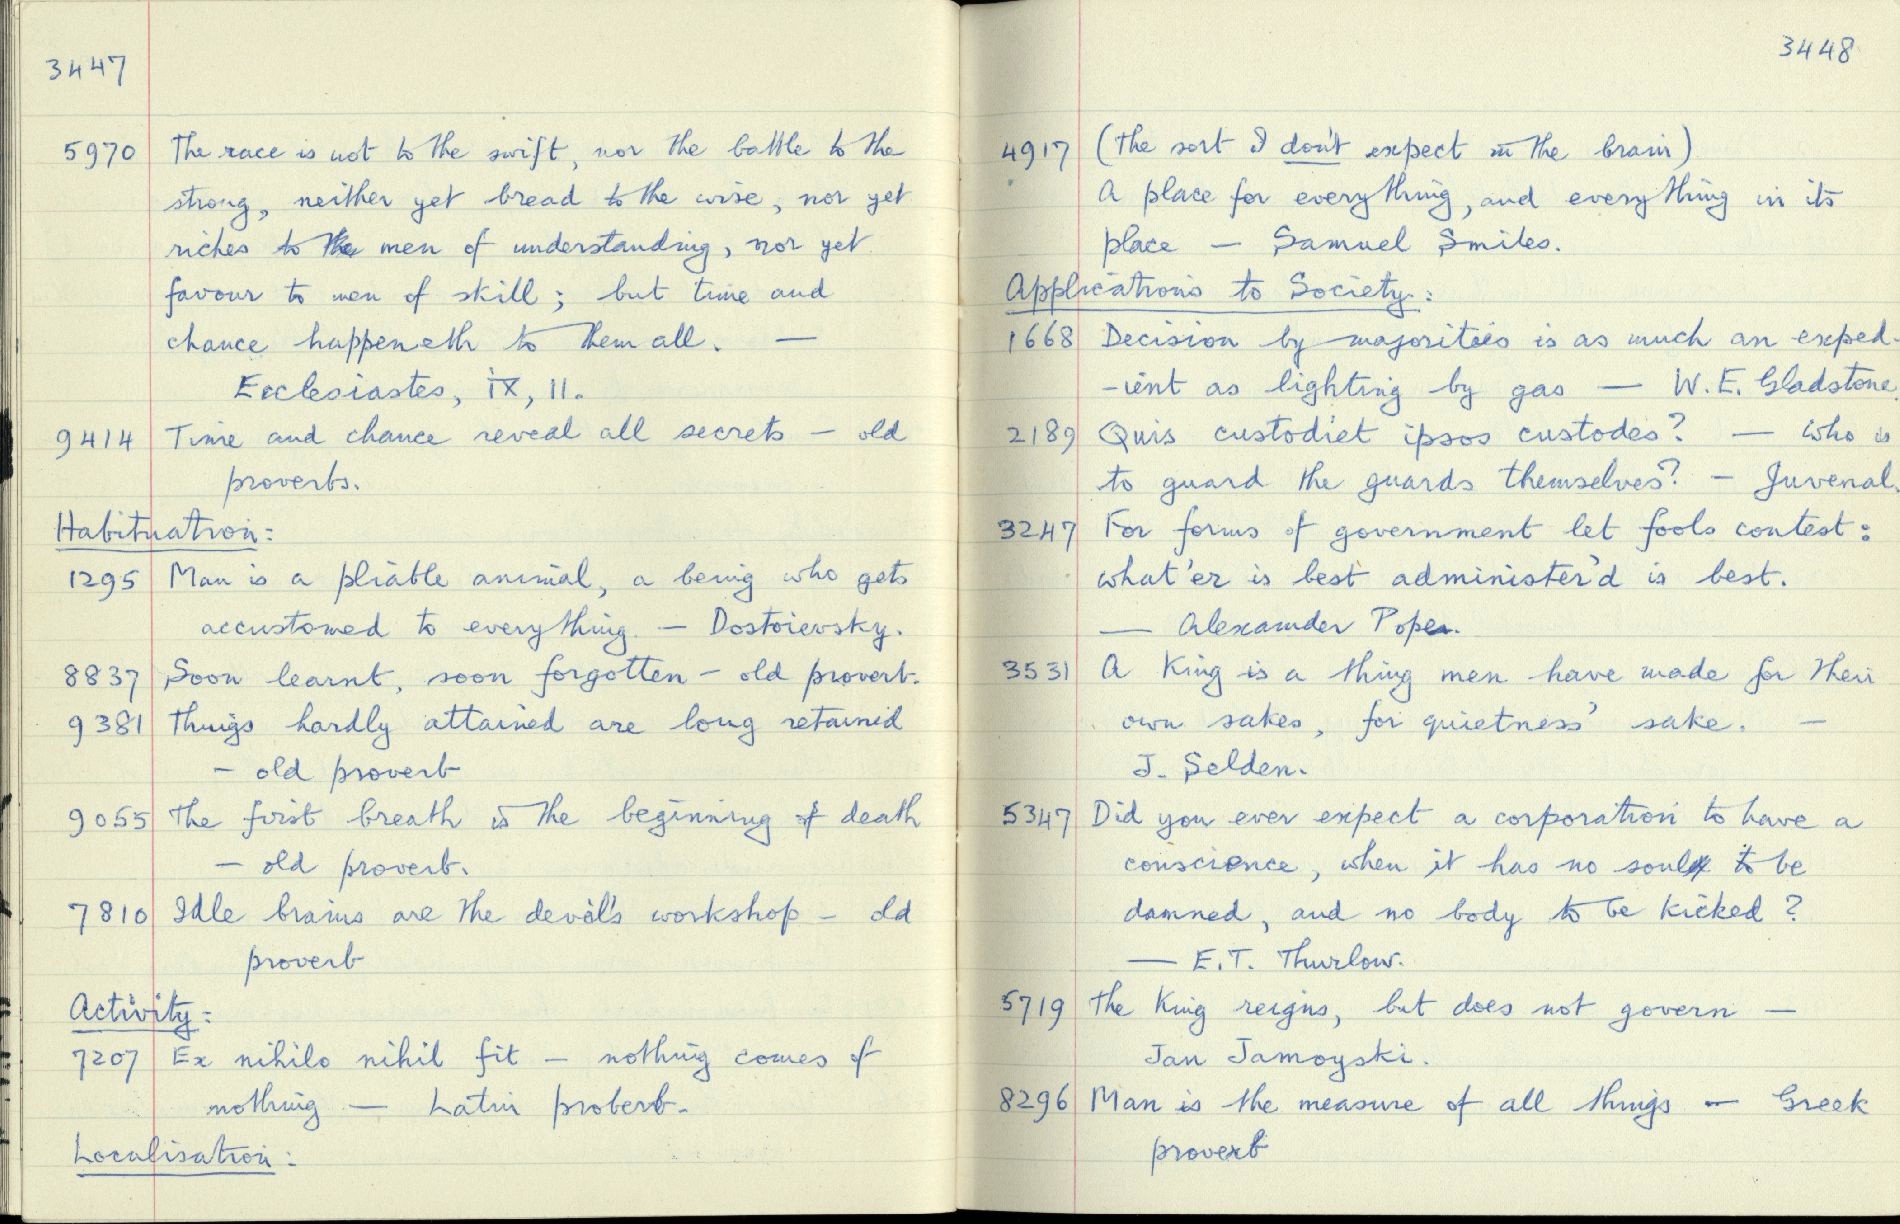 3447
5970 The race is not to the swift, nor the battle to the
strong, neither yet bread to the wise, nor yet
riches to the men of understanding, nor yet
favour to men of skill; but time and
chance happeneth to them all. —
Ecclesiastes, ix, 11.
9414 Time and chance reveal all secrets — old
proverbs.
Habituation:
1295 Man is a pliable animal, a being who gets
accustomed to everything — Dostoievsky.
8837 Soon learnt, soon forgotten — old proverb.
9381 Things hardly attained are long retained
— old proverb
9055 The first breath is the beginning of death
— old proverb.
7810 Idle brains are the devil's workshop — old
proverb
Activity:
7207 Ex nihilo nihil fit — nothing comes of
nothing — Latin proberb.
Localisation:
3448
4917 (The sort I don't expect in the brain)
A place for everything, and everything in its
place — Samuel Smiles.
Applications to Society:
1668 Decision by majorities is as much an exped-
-ient as lighting by gas — W.E. Gladstone.
2189 Quis custodiet ipsos custodes? — Who is
to guard the guards themselves? — Juvenal.
3247 For forms of government let fools contest:
what'er is best administer'd is best.
— Alexander Pope.
3531 A King is a thing men have made for their
own sakes, for quietness' sake. —
J. Selden.
5347 Did you ever expect a corporation to have a
conscience, when it has no soul to be
damned, and no body to be kicked?
— E.T. Thurlow.
5719 The King reigns, but does not govern —
Jan Jamoyski.
8296 Man is the measure of all things — Greek
proverb